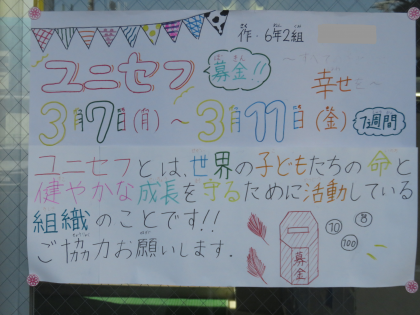 作・6年2組
ユニセフ 募金!!
幸せ
3月7日(月)～3月11日(金) 1週間
ユニセフとは、世界の子どもたちの命と
健やかな成長を守るために活動している
組織のことです!!
ご協力お願いします.
10 8
100
募金